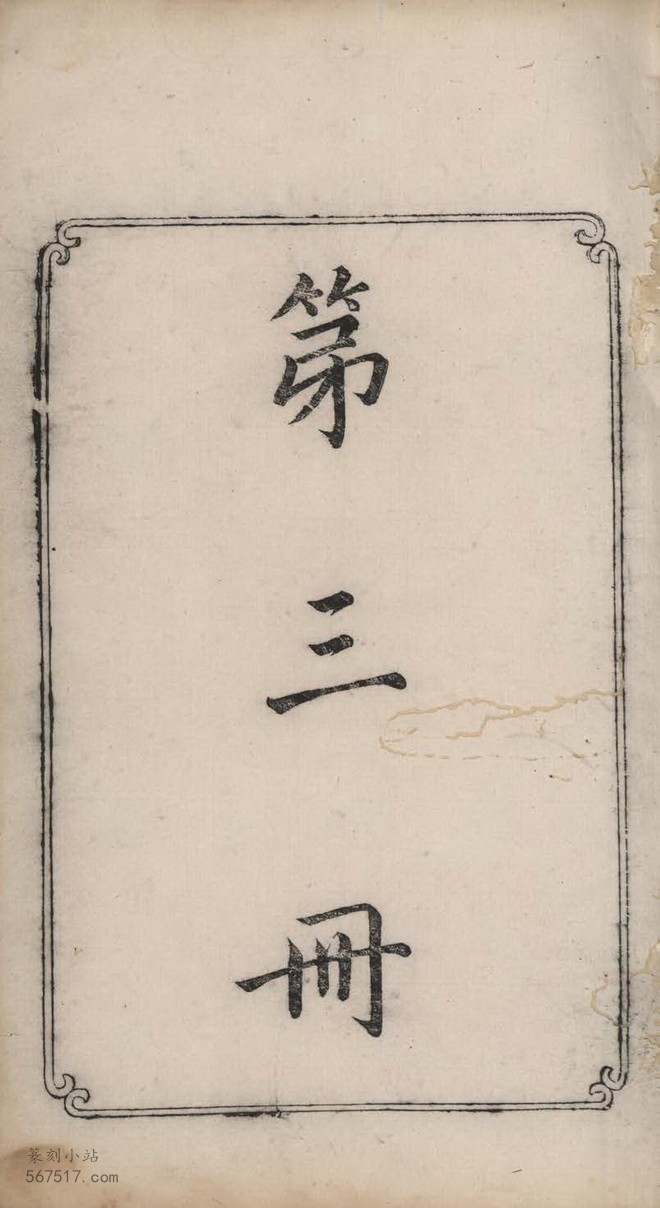 第三冊
篆刻小站
567517.com